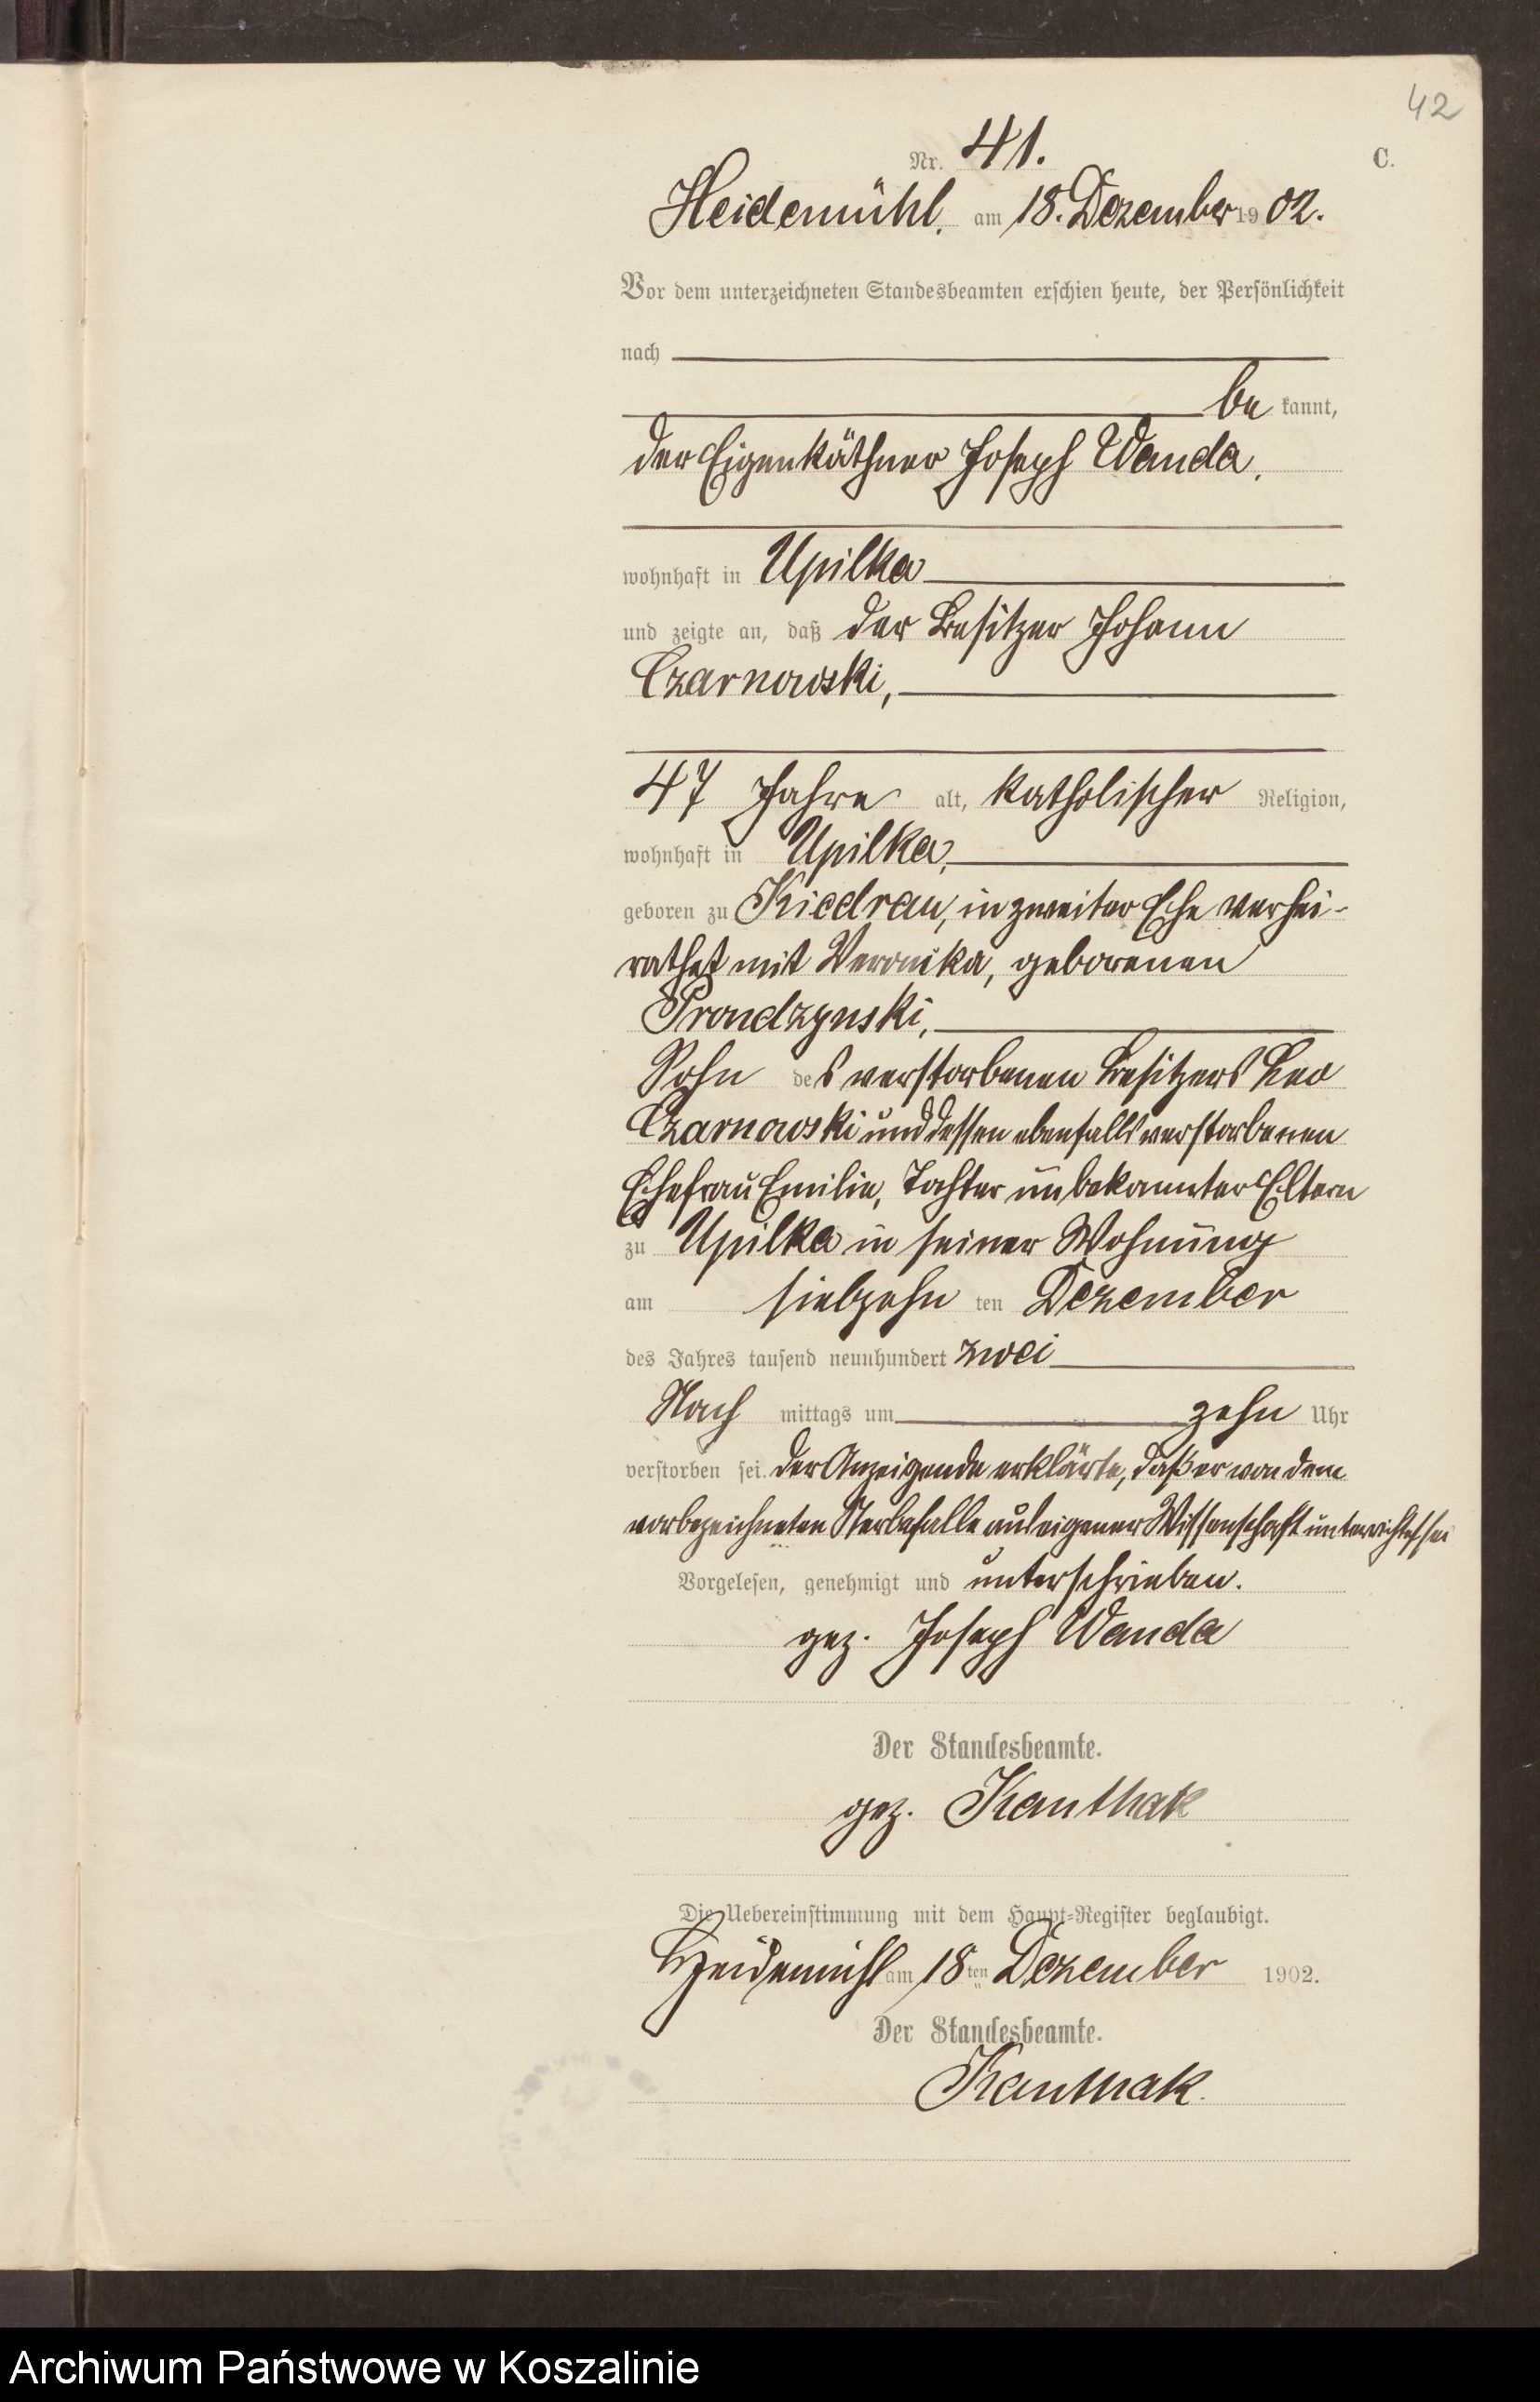 42
Nr. 41. C.
Heidemühl, am 18. Dezember 1902.
Vor dem unterzeichneten Standesbeamten erschien heute, der Persönlichkeit
nach
be kannt,
der Eigenkäthner Joseph Wanda,
wohnhaft in Upilka
und zeigte an, daß der Besitzer Johann
Czarnowski,
47 Jahre alt, katholischer Religion,
wohnhaft in Upilka,
geboren zu Kiedrau, in zweiter Ehe verhei-
rathet mit Veronika, geborenen
Prondzynski,
Sohn des verstorbenen Besitzers Leo
Czarnowski und dessen ebenfalls verstorbenen
Ehefrau Emilie, Tochter unbekannter Eltern
zu Upilka in seiner Wohnung
am siebzehn ten Dezember
des Jahres tausend neunhundert zwei
Nach mittags um zehn Uhr
verstorben sei. Der Anzeigende erklärte, daß er von dem
vorbezeichneten Sterbefalle aus eigener Wissenschaft unterrichtet sei
Vorgelesen, genehmigt und unterschrieben.
gez. Joseph Wanda
Der Standesbeamte.
gez. Kanthak
Die Uebereinstimmung mit dem Haupt-Register beglaubigt.
Heidemühl am 18ten Dezember 1902.
Der Standesbeamte.
Kanthak.
Archiwum Państwowe w Koszalinie